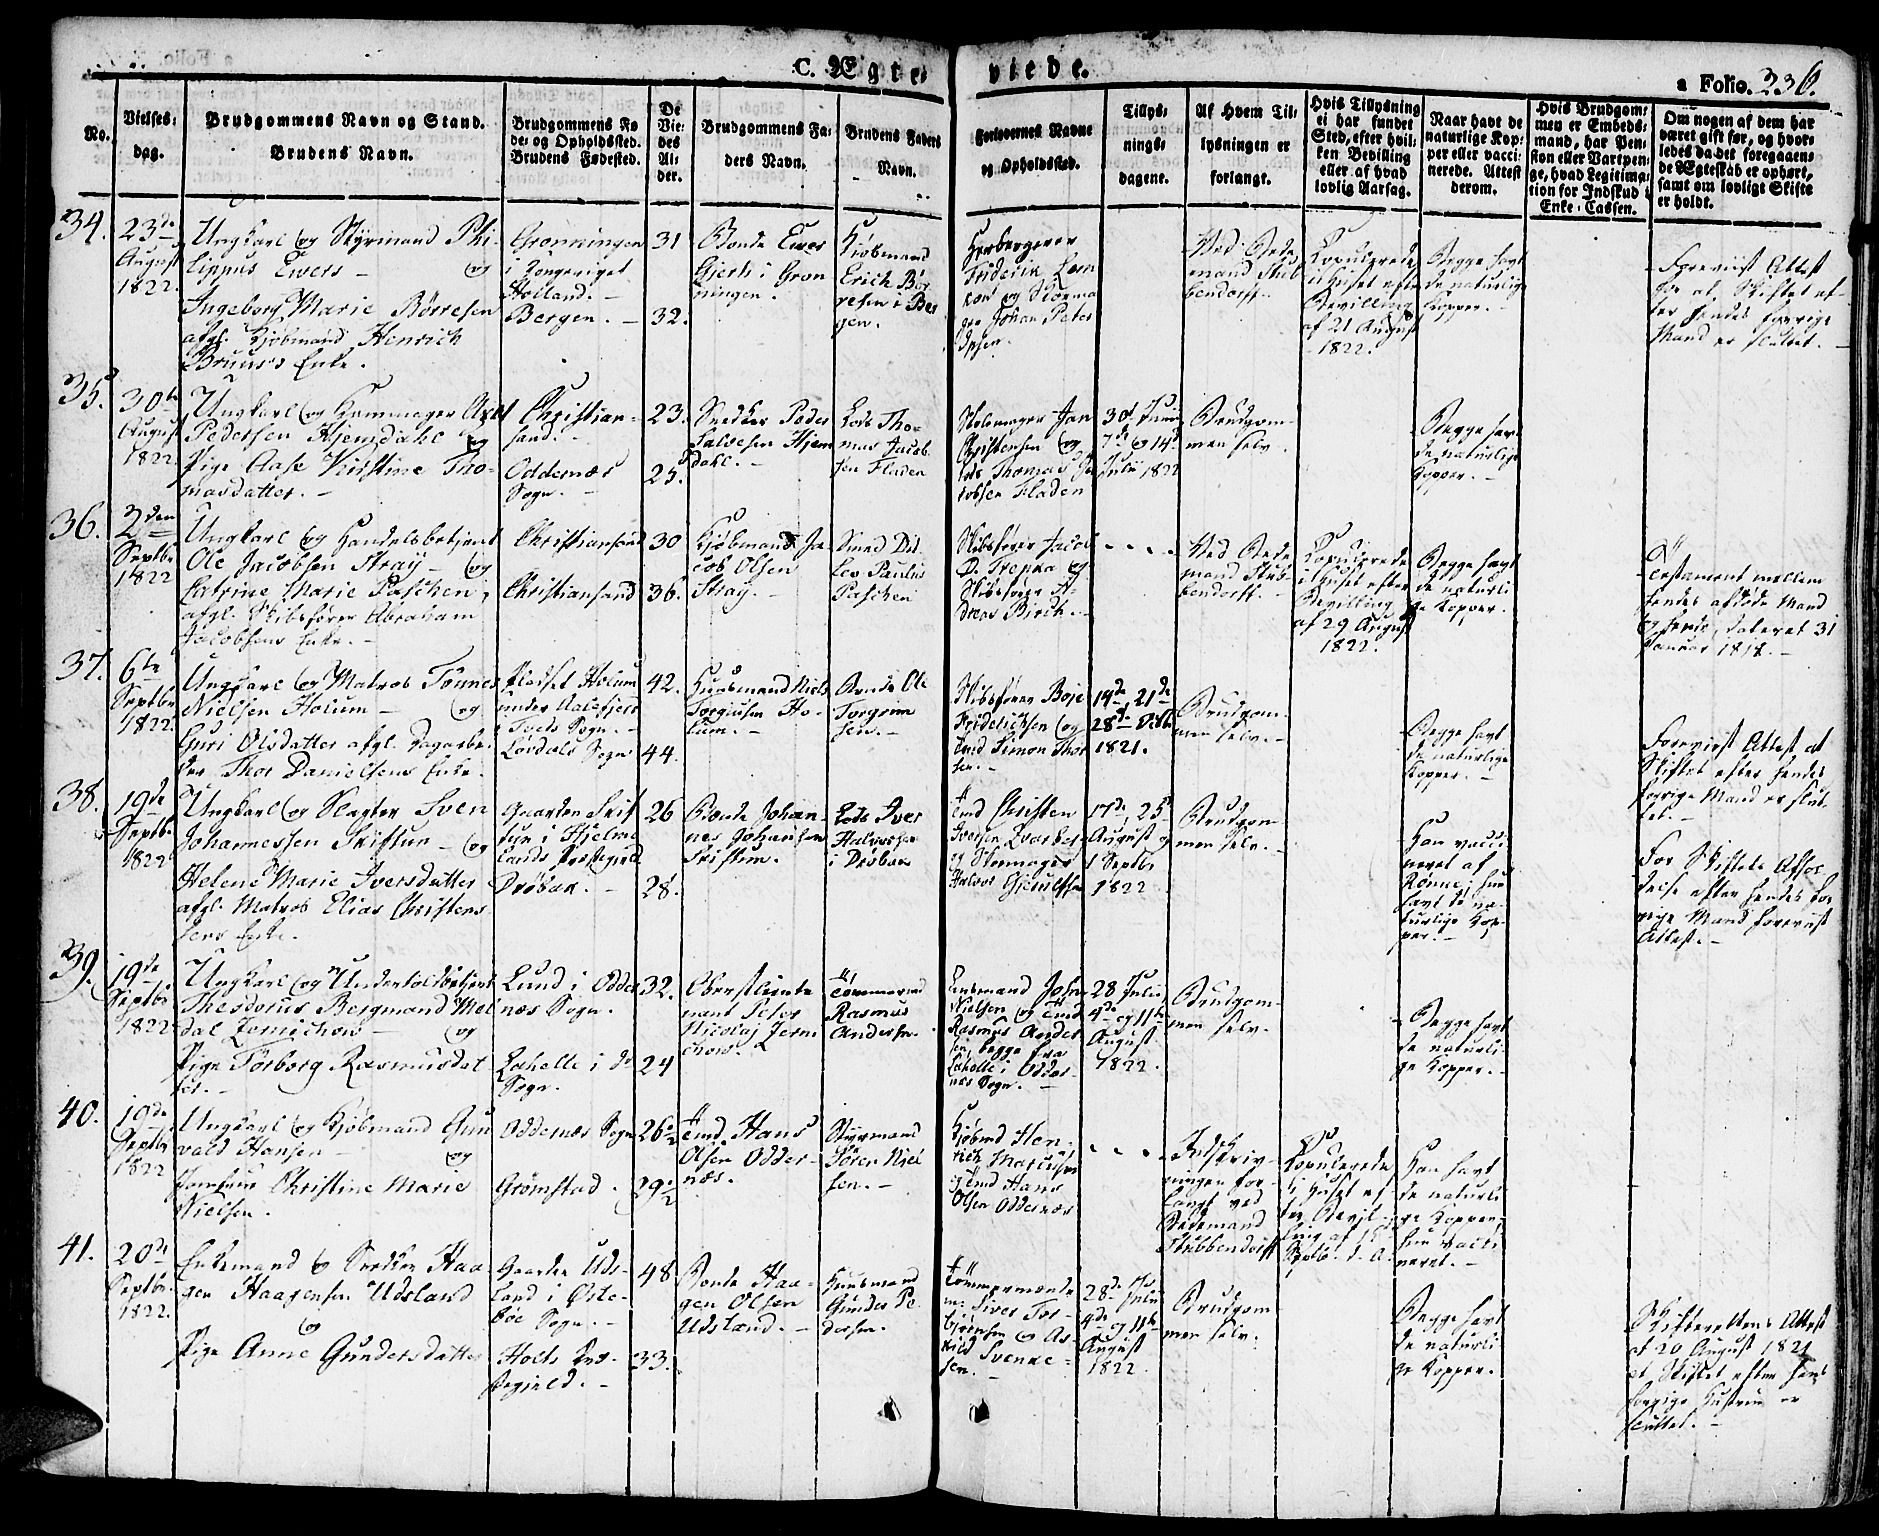 C. Ægte-
viede.
a Folio. 336.
No.
Vielses-
dag.
Brudgommens Navn og Stand.
Brudens Navn.
Brudgommens Fø-
de- og Opholdssted.
Brudens Fødested.
De
Vie-
des
Al-
der.
Brudgommens Fa-
ders Navn.
Brudens Faders
Navn.
Forlovernes Navne
og Opholdssted.
Tillys-
nings-
dagene.
Af Hvem Til-
lysningen er
forlangt.
Hvis Tillysning
ei har fundet
Sted, efter hvil-
ken Bevilling
eller af hvad
lovlig Aarsag.
Naar havt de
naturlige Kop-
per eller vacci-
nerede. Attest
derom.
Hvis Brudgom-
men er Embeds-
mand, har Pen-
sion eller Vartpen-
ge, hvad Legitima-
tion for Indskud i
Enke-Cassen.
Om nogen af dem har
været gift før, og hvor-
ledes da det foregaaen-
de Ægteskab er ophørt,
samt om lovligt Skifte
er holdt.
34.
23de
August
1822.
Ungkarl og Styrmand Phi-
lippus Ewers – og
Ingeborg Marie Børresen
afgl. Kjøbmand Henrich
Bruuns Enke.
Grønningen
i Kongeriget
Holland. –
Bergen. –
31
32.
Bonde Ewer
Gjerh i Grøn
ningen.
Kjøbmand
Erich Bør-
resen i Ber
gen.
Herbergerer
Friderik Lom
og Skorma
ger Johan Peter
Ved Bede
mand Stub
bendorff.
Copulerede
i Huset efter
Bevilling
af 21 August
1822.
Begge havt
de naturlige
Kopper. –
Foreviist Attest
for at Skiftet ef-
ter hendes forrige
Mand er sluttet. –
35.
30te
August
1822.
Ungkarl og Kammager Axel
Pedersen Hjemdahl og
Pige Aase Kirstine Tho-
masdatter. –
Christian-
sand. –
Oddernæs
Sogn. –
23.
25.
Snedker Peder
Salvesen Hjem
dahl. –
Lods Tho-
mas Jacob-
sen Fladen
Stolemager Jan
Christensen og
Lods Thomas Ja
cobsen Fladen
30t Juni
7de og 14d
Juli 1822
Brudgom-
men selv.
Begge hav
de naturlige
Kopper. –
36.
2den
Septbr
1822
Ungkarl og Handelsbetjent
Ole Jacobsen Stray – og
Catrine Marie Paschen,
afgl. Skibsfører Abraham
Jacobsens Enke. –
Christiansand
Christiansand
30
36.
Kjøbmand Ja-
cob Olsen
Stray. –
Smed Dit-
lev Paulus
Paschen
Skibsfører Jacob
D. Trepka og
Skibsfører A-
dreas Birch. –
Ved Bede
mand Stub-
bendorff. –
Copulerede
i Huset efter
Bevilling
af 29 August
1822.
Begge havt
de naturli
ge Kopper. –
Testament mellem
hendes afdøde Mand
og hende, dateret 31
Januar 1818. –
37.
6te
Septbr
1822.
Ungkarl og Matros Tønnes
Nielsen Holum – og
Guri Olsdatter afgl. Dagarbei
der Thor Danielsens Enke.
Pladset Holum
under Aalefjær
i Tveds Sogn. –
Løvdals Sogn
42.
44.
Huusmand Niels
Torgiusen Ho-
lum. –
Bonde Ole
Torgrim
sen. –
Skibsfører Boje
Frideriksen og
Tmd Simon Thor
sen. –
14de, 21de
28de Octbr
1821.
Brudgom-
men selv. –
Begge havt
de naturlige
Kopper. –
Foreviist Attest, at
Skiftet efter hendes
forrige Mand er slut-
tet. –
38.
19de
Septbr
1822
Ungkarl og Slagter Sven
Johannessen Skiftun – og
Helene Marie Iversdatter
afgl. Matros Elias Christens-
sens Enke.
Gaarden Skif
tun i Hjelme
lands Præstegield
Drøbak. –
26
28.
Bonde Johan-
nes Johansen
Skiftun.
Lods Iver
Halvorsen
i Drøbak
Tmd Christen
Iversen Svarbes
og Skomager
Halvor Hjeruldsen
17de, 25de
August og
1 Septbr
1822
Brudgom
men selv. –
Han vacci
neret af
Rønne; hun
havt de na-
turlige Kop-
per. –
For Skiftets Afhol-
delse efter hendes for
rige Mand foreviist
Attest. –
39.
19de
Septbr
1822
Ungkarl og Undertoldbetjent
Theodorus Bergmand Mel
dal Zernichow – og
Pige Torborg Rasmusdat
ter. –
Lund i Odder
næs Sogn.
Laxhelle i do
Sogn.
32.
24
Oberstlieute
nant Peter
Nicolaj Zerni
chow. –
Tømmermd
Rasmus
Andersen. –
Enkemand John
Nielsen og Tmd
Rasmus Ander
sen, begge fra
Laxhelle i Odder
næs Sogn. –
28 Julii
4de og 11te
August
1822.
Brudgom-
men selv.
Begge havt
de naturli-
ge Kopper. –
40.
19de
Septbr
1822
Ungkarl og Kjøbmand Gun
vald Hansen – og
Jomfrue Christine Marie
Nielsen.
Oddernæs Sogn
Grømstad.
26 1/2
29 1/2
Tmd Hans
Olsen Odder-
næs.
Styrmand
Søren Niel
sen. –
Kjøbmd Hen-
rich Mathisen
og Tmd Hans
Olsen Oddernæs
Indskriv-
ningen for-
langt ved
Bedemand
Stubbendorff
Copulerede
i Huset ef
ter Bevil-
ling af 18
Septb. d. A.
Han havt
de naturli
ge Kopper,
hun vacci
neret. –
41.
20de
Septbr.
1822.
Enkemand og Snedker Haa
gen Haagensen Udsland
og
Pige Anne Gundersdatter
Gaarden Uds-
land i Øste-
bøe Sogn. –
Holts Præ-
stegield. –
48
33.
Bonde Haa-
gen Olsen
Udsland. –
Huusmand
Gunder Pe
dersen.
Tømmermænde
ne Siver Tor-
bjørnsen og As-
kild Svenke-
sen. –
28de Julii
4de og 11te
August
1822.
Brudgom
men selv.
Begge havt
de naturli
ge Kopper.
Skifterettens Attest
af 20 August 1821
at Skiftet efter hans
forrige Hustrue er
sluttet. –